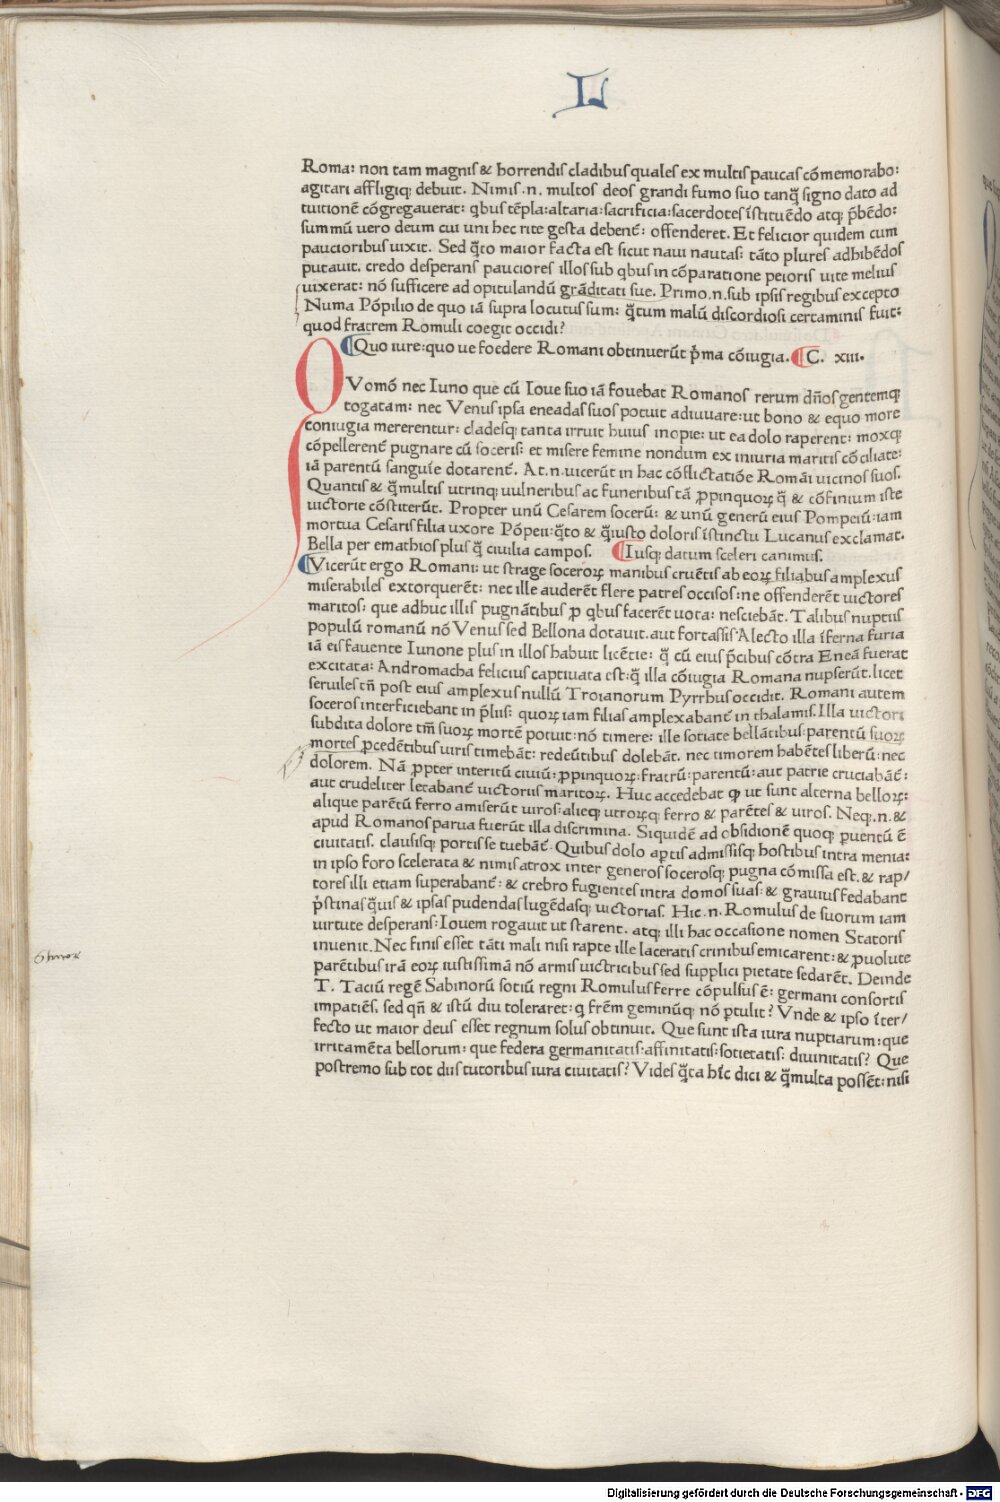 L
Roma: non tam magnis & horrendis cladibus quales ex multis paucas cōmemorabo:
agitari affligiq; debuit. Nimis .n. multos deos grandi fumo suo tanq̃ signo dato ad
tuitionē cōgregauerat: qbus tēpla: altaria: sacrificia: sacerdotes īstituēdo atq; p̄bēdo:
summū uero deum cui uni hec rite gesta debent̄: offenderet. Et felicior quidem cum
paucioribus uixit. Sed q̄to maior facta est sicut naui nautas: tāto plures adhibēdos
putauit. credo desperans pauciores illos sub qbus in cōparatione peioris uite melius
uixerat: nō sufficere ad opitulandū grāditati sue. Primo .n. sub ipsis regibus excepto
Numa Pōpilio de quo iā supra locutus sum: q̄tum malū discordiosi certaminis fuit:
quod fratrem Romuli coegit occidi?
Quo iure: quo ue foedere Romani obtinuerūt p̄ma cōiugia. C. xiii.
QVomō nec Iuno que cū Ioue suo iā fouebat Romanos rerum dn̄os gentemq;
togatam: nec Venus ipsa eneadas suos potuit adiuuare: ut bono & equo more
coniugia mererentur: cladesq; tanta irruit huius inopie: ut ea dolo raperent: moxq;
cōpellerent̄ pugnare cū soceris: et misere femine nondum ex iniuria maritis cōciliate:
iā parentū sanguīe dotarent̄. At .n. uicerūt in hac cōflictatiōe Romāi uicinos suos.
Quantis & q̄multis utrinq; uulneribus ac funeribus tā ꝓpinquoꝝ q̄ & cōfinium iste
uictorie cōstiterūt. Propter unū Cesarem socerū: & unū generū eius Pompeiū: iam
mortua Cesaris filia uxore Pōpeii: q̄to & q̄iusto doloris īstinctu Lucanus exclamat.
Bella per emathios plus q̄ ciuilia campos. Iusq; datum sceleri canimus.
Vicerūt ergo Romani: ut strage soceroꝝ manibus cruētis ab eoꝝ filiabus amplexus
miserabiles extorquerēt: nec ille auderēt flere patres occisos: ne offenderēt uictores
maritos: que adhuc illis pugnātibus ꝓ qbus facerēt uota: nesciebāt. Talibus nuptiis
populū romanū nō Venus sed Bellona dotauit. aut fortassis Alecto illa īferna furia
iā eis fauente Iunone plus in illos habuit licētie: q̄ cū eius p̄cibus cōtra Eneā fuerat
excitata: Andromacha felicius captiuata est: q̄ illa cōiugia Romana nupserūt. licet
seruiles tn̄ post eius amplexus nullū Troianorum Pyrrhus occidit. Romani autem
soceros interficiebant in p̄liis: quoꝝ iam filias amplexabant̄ in thalamis. Illa uictori
subdita dolore tm̄ suoꝝ mortē potuit: nō timere: ille sotiate bellātibus: parentū suoꝝ
mortes ꝓcedētibus uiris timebāt: redeūtibus dolebāt. nec timorem habētes liberū: nec
dolorem. Nā ꝓpter interitū ciuiū: ꝓpinquoꝝ: fratrū: parentū: aut patrie cruciabāt̄:
aut crudeliter letabant̄ uictoriis maritoꝝ. Huc accedebat ꝙ ut sunt alterna belloꝝ:
alique parētū ferro amiserūt uiros: alieq; utroꝝq; ferro & parētes & uiros. Neq; .n. &
apud Romanos parua fuerūt illa discrimina. Siquidē ad obsidionē quoq; ꝑuentū ē
ciuitatis. clausisq; portis se tuebāt̄. Quibus dolo aꝑtis admissisq; hostibus intra menia:
in ipso foro scelerata & nimis atrox inter generos socerosq; pugna cōmissa est. & rap/
tores illi etiam superabant̄: & crebro fugientes intra domos suas: & grauius fedabant
p̄stinas q̄uis & ipsas pudendas lugēdasq; uictorias. Hic .n. Romulus de suorum iam
uirtute desperans: Iouem rogauit ut starent. atq; illi hac occasione nomen Statoris
inuenit. Nec finis esset tāti mali nisi rapte ille laceratis crinibus emicarent: & ꝓuolute
parētibus irā eoꝝ iustissimā nō armis uictricibus sed supplici pietate sedarēt. Deinde
T. Tatiū regē Sabinorū sotiū regni Romulus ferre cōpulsus ē: germani consortis
impatiēs. sed qn̄ & istū diu toleraret: q frēm geminūq; nō ꝑtulit? Vnde & ipso īter/
fecto ut maior deus esset regnum solus obtinuit. Que sunt ista iura nuptiarum: que
irritamēta bellorum: que federa germanitatis: affinitatis: sotietatis: diuinitatis? Que
postremo sub tot diis tutoribus iura ciuitatis? Vides q̄ta hīc dici & q̄multa possēt: nisi
Digitalisierung gefördert durch die Deutsche Forschungsgemeinschaft - DFG